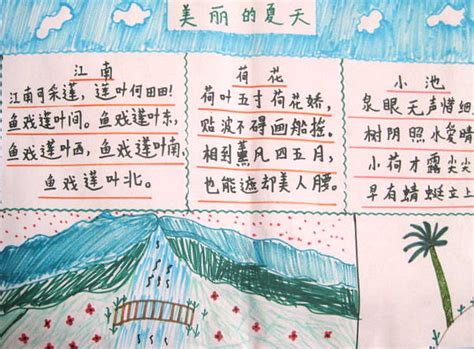 美丽的夏天
江南
江南可采莲，莲叶何田田！
鱼戏莲叶间。鱼戏莲叶东，
鱼戏莲叶西，鱼戏莲叶南，
鱼戏莲叶北。
荷花
荷叶五寸荷花娇，
贴波不碍画船摇。
相到薰凡四五月，
也能遮却美人腰。
小池
泉眼无声惜细
树阴照水爱晴
小荷才露尖尖
早有蜻蜓立上